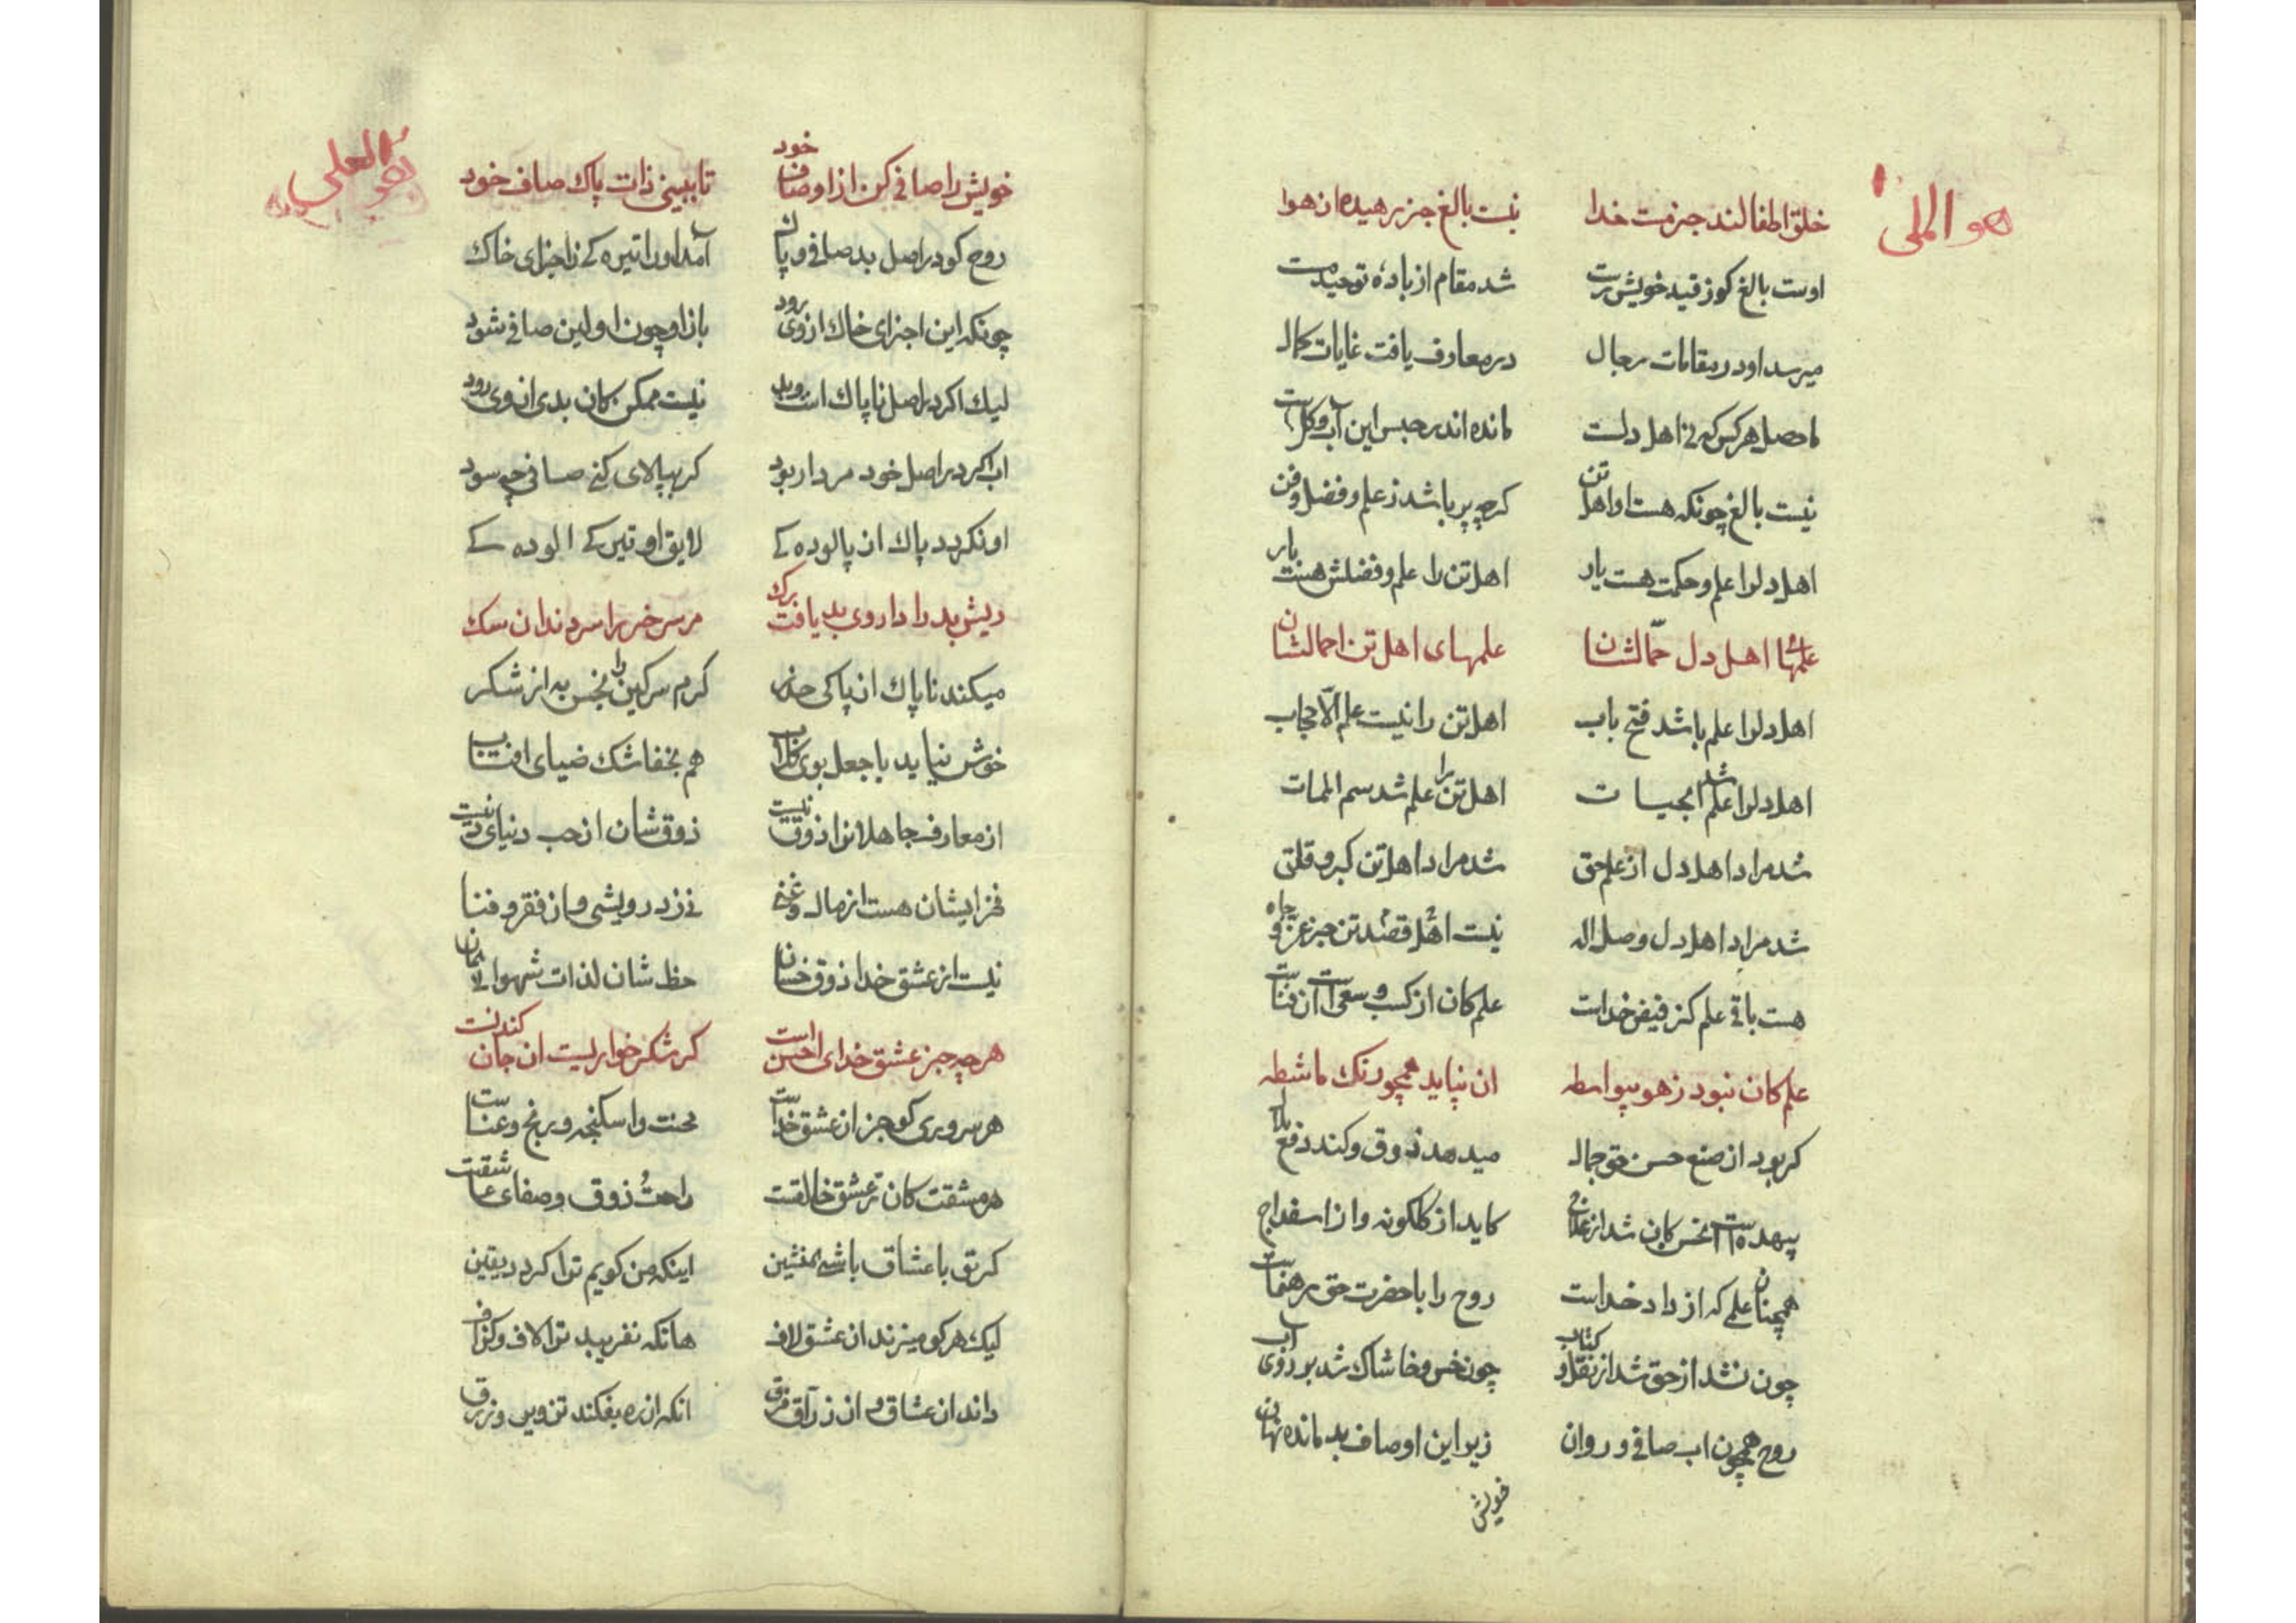 هو الملی
خلق اطفالند جز مست خدا نیست بالغ جز رهیده از هوا
اوست بالغ کوز قید خویش رست شد مقام از بادهٔ توحید مست
میرسد او در مقامات رجال در معارف یافت غایات کمال
ماحصل هر کس که نی اهل دلست مانده اندر حبس این آب و کلست
نیست بالغ چونکه هست او اهل تن کرچه پر باشد ز علم و فضل و فن
اهل دلرا علم و حکمت هست یار اهل تن را علم و فضلش هست بار
علمهای اهل دل حمّالشان علمهای اهل تن احمالشان
اهل دلرا علم باشد فتح باب اهل تن را نیست علم الّا حجاب
اهل دلرا علم شد ابحیات اهل تن را علم شد سم الممات
شد مراد اهل دل از علم حق شد مراد اهل تن کبر و قلق
شد مراد اهل دل وصل اله نیست اهل تن قصد جز عز و جاه
هست باقی علم کز فیض خداست علم کان از کسب و سعی است ان فناست
علم کان نبود ز هو بیواسطه ان نپاید همچو رنک ماشطه
کر بود از صنع حسن حق جمال میدهد ذوق و کند دفع
بیهده است انحس کان شد از علاج کاید از کلکونه و از اسفداج
همچنان علمی که از داد خداست روح را با حضرت حق رهنماست
چون نشد از حق شد از نقل و کتاب چون خس و خاشاک شد بر روی آب
روح همچون اب صافی و روان زیر این اوصاف بد مانده نهان
خویش
هو العلی
خویش را صافی کن از اوصاف خود تا ببینی ذات پاک صاف خود
روح کو در اصل بد صافی و پاک آمد او را تیره کی ز اجزای خاک
چونکه این اجزای خاک از وی رود باز او چون اولین صافی شود
لیک اکر در اصل ناپاک است و بد نیست ممکن کان بدی از وی رود
اب اکر در اصل خود مردار بود کر بپالای کنی صافی چه سود
او نکردد پاک از پالوده کی لایق او تیرکی الوده کی
ریش بد را داروی بد یافت رک مر سر خر را سزد دندان سک
میکند ناپاک از پاکی حذر کرم سرکین را نجس به از شکر
خوش نیاید با جعل بوی کلاب هم بخفاشک ضیای افتاب
از معارف جاهلانرا ذوق نیست ذوقشان از حب دنیای دنیست
فخر ایشان هست از مال و غنی نی ز درویشی و از فقر و فنا
نیست از عشق خدا ذوق خسان حظ شان لذات شهوانی
هر چه جز عشق خدای احسن است کر شکر خواریست ان جان کندنست
هر سروری کو جز از عشق خداست محنت و اسکنجه و رنج و عناست
هر مشقت کان ز عشق خالقست راحت و ذوق و صفای عاشقست
کر تو با عشاق باشی همنشین اینکه من کویم ترا کردد یقین
لیک هر کو میزند از عشق لاف هانکه نفریبد ترا لاف و کزاف
داند از عشاق و از زراق فرق انکه از ره بفکند تزویر و زرق